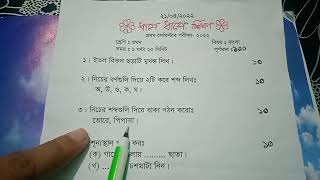 ২১/০৪/২০২২
প্রথম সেমিস্টার পরীক্ষা- ২০২২
শ্রেণি : প্রথম
বিষয় : বাংলা
সময় : ১ ঘন্টা ১০ মিনিট
পূর্ণমান : ১০০
১। ইতল বিতল ছড়াটি মুখস্ত লিখ।
১০
২। নিচের বর্ণগুলি দিয়ে ২টি করে শব্দ লিখঃ
১০
অ, উ, ও, ক, ঘ।
৩। নিচের শব্দগুলি দিয়ে বাক্য গঠন করোঃ
১০
ভোরে, পিপাসা।
শূন্যস্থান
করঃ
১০
(ক)
লায় ......... ছাতা।
(খ)
চশমাটা দিন।